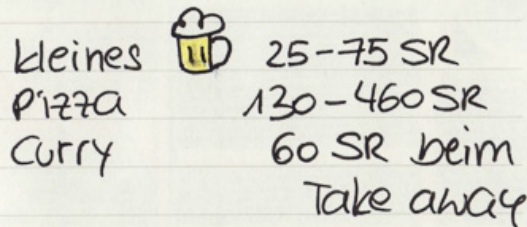 kleines 25-75 SR
Pizza 130-460 SR
Curry 60 SR beim
Take away